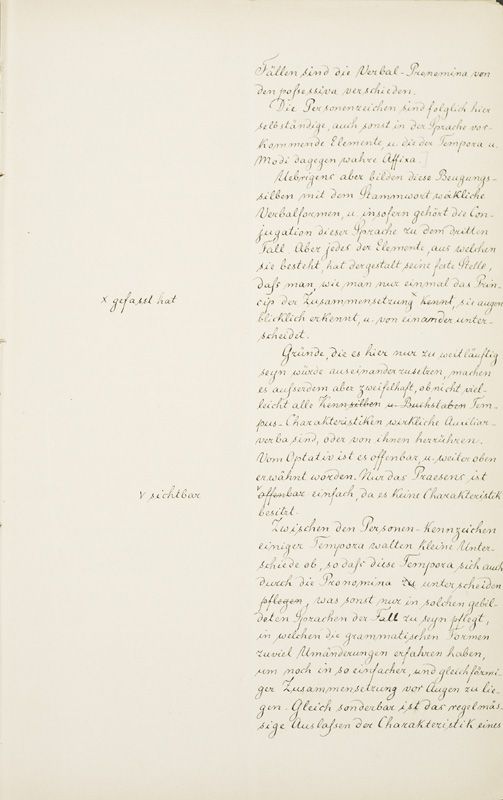 Fällen sind die Verbal-Pronomina von
den possessiva verschieden.
Die Personenzeichen sind folglich hier
selbständige, auch sonst in der Sprache vor-
kommende Elemente, u. die der Tempora u.
Modi dagegen wahre Affixa.
Uebrigens aber bilden diese Beugungs-
silben mit dem Stammwort wirkliche
Verbalformen, u. insofern gehört die Con-
jugation dieser Sprache zu dem dritten
Fall. Aber jedes der Elemente, aus welchen
sie besteht, hat dergestalt seine feste Stelle,
dass man, wie man nur einmal das Prin-
x gefasst hat
cip der Zusammensetzung kennt, sie augen
blicklich erkennt, u. von einander unter-
scheidet.
Gründe, die es hier nur zu weitläuftig
seyn würde auseinanderzusetzen, machen
es ausserdem aber zweifelhaft, ob nicht viel-
leicht alle Kennsilben u. Buchstaben Tem-
pus-Charakteristiken wirkliche Auxiliar-
verba sind, oder von ihnen herrühren.
Vom Optativ ist es offenbar, u. weiter oben
erwähnt worden. Nur das Praesens ist
v sichtbar
offenbar einfach, da es keine Charakteristik
besitzt.
Zwischen den Personen-Kennzeichen
einiger Tempora walten kleine Unter-
schiede ob, so dass diese Tempora sich auch
durch die Pronomina zu unterscheiden
pflegen, was sonst nur in solchen gebil-
deten Sprachen der Fall zu seyn pflegt,
in welchen die grammatischen Formen
zuviel Umänderungen erfahren haben,
um noch in so einfacher, und gleichförmi-
ger Zusammensetzung vor Augen zu lie-
gen. Gleich sonderbar ist das regelmäs-
sige Auslassen der Charakteristik eines